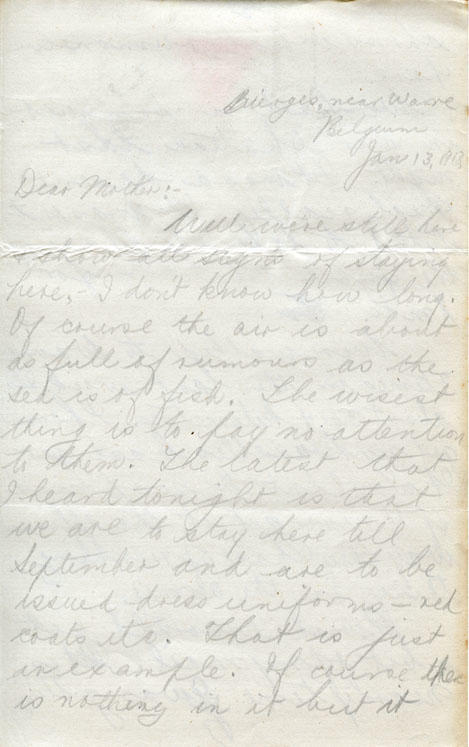 Bierges, near Wavre
Belgium
Jan 13, 1919
Dear Mother:-
Well were still here
& show all signs of staying
here,- I don't know how long.
Of course the air is about
as full of rumours as the
sea is of fish. The wisest
thing is to pay no attention
to them. The latest that
I heard tonight is that
we are to stay here till
September and are to be
issued dress uniforms - red
coats etc. That is just
an example. Of course there
is nothing in it but it